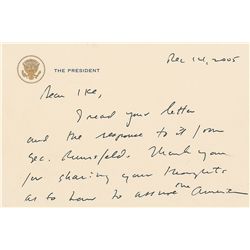 THE PRESIDENT
Dec 14, 2005
Dear Ike,
I read your letter
and the response to it from
Sec. Rumsfeld. Thank you
for sharing your thoughts
as to how to assure the America